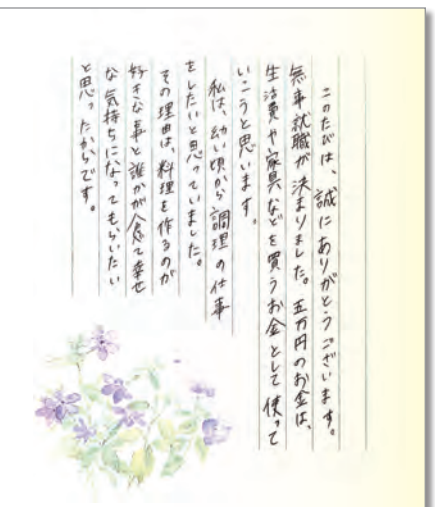 このたびは、誠にありがとうございます。
無事就職が決まりました。五万円のお金は、
生活費や家具などを買うお金として使って
いこうと思います。
私は、幼い頃から調理の仕事
をしたいと思っていました。
その理由は、料理を作るのが
好きな事と誰かが食べて幸せ
な気持ちになってもらいたい
と思ったからです。